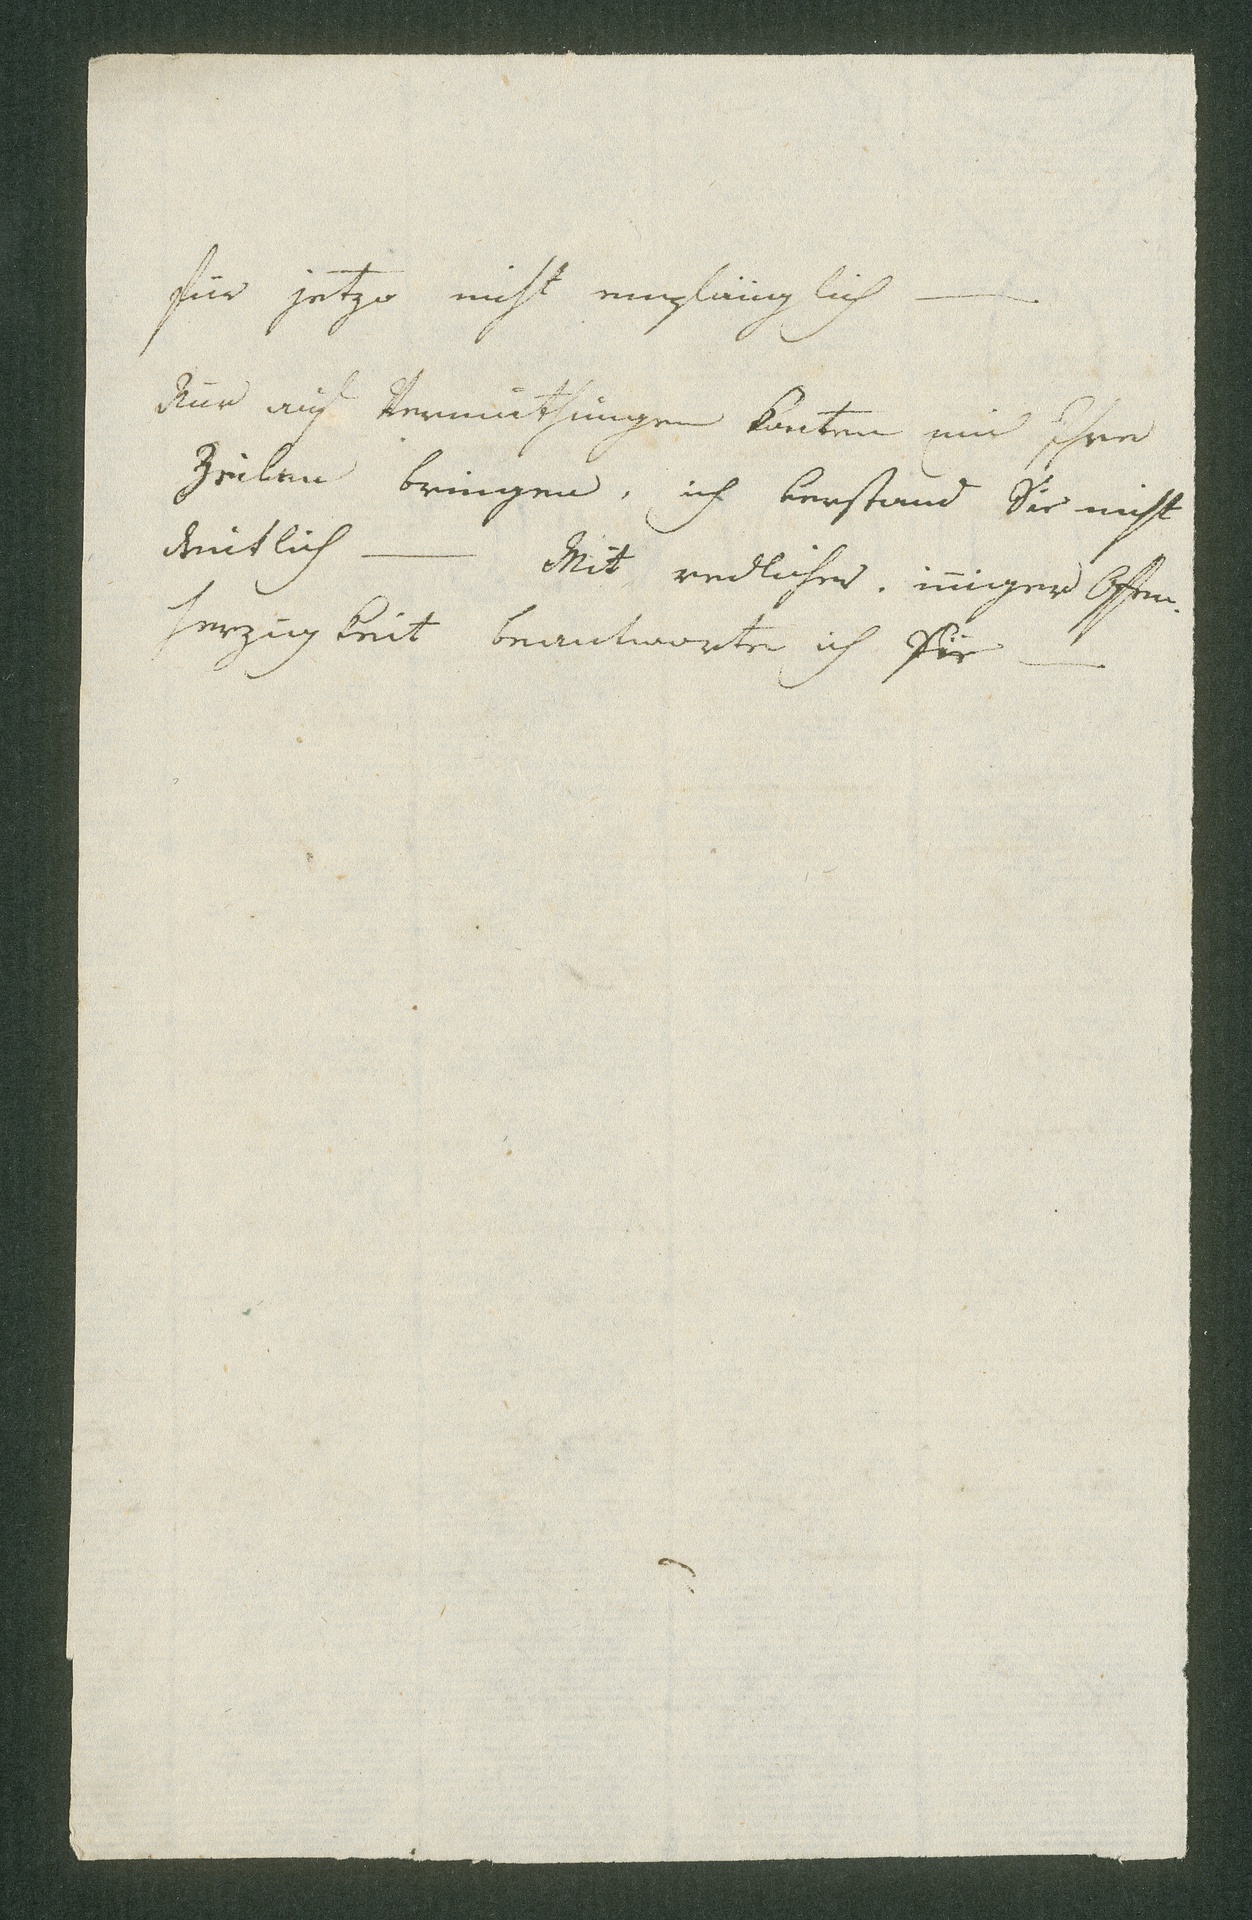 für jetzo nicht empfänglich —
Nur auf Vermuthungen konten mich Ihre
Zeilen bringen, ich verstand Sie nicht
deutlich — Mit redlicher, iniger Offen-
herzigkeit beantworte ich Sie —